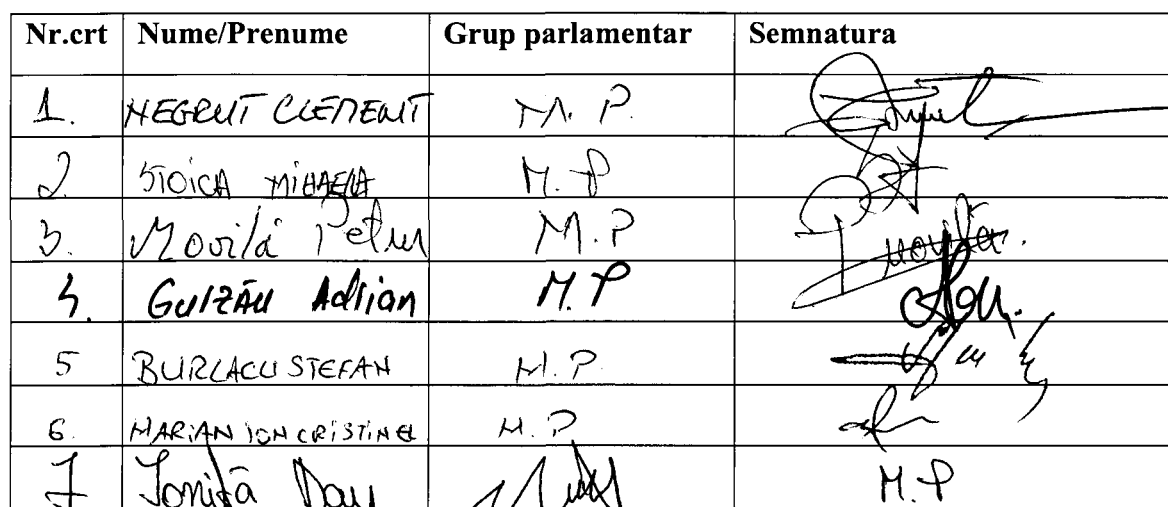 Nr.crt Nume/Prenume Grup parlamentar Semnatura
1. NEGRUT CLEMENT M. P.
2 STOICA MIHAELA M. P
3. Movilă Petru M. P Pmovila.
4. Gurzău Adrian M. P
5 BURLACU STEFAN M. P.
6. MARIAN ION CRISTINEL M. P
7 Ioniță Dan M. P